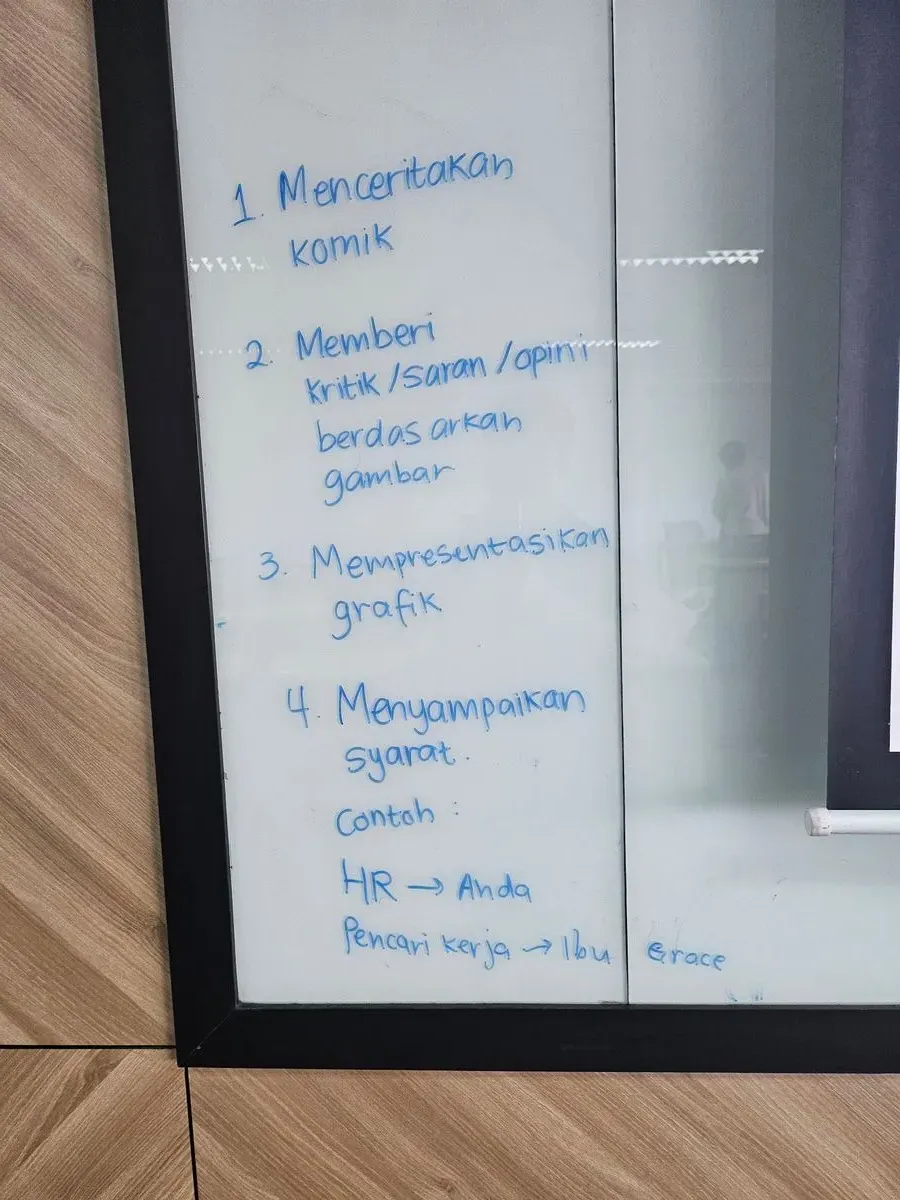 1. Menceritakan
komik
2. Memberi
kritik/saran/opini
berdasarkan
gambar
3. Mempresentasikan
grafik
4. Menyampaikan
syarat.
Contoh :
HR → Anda
Pencari kerja → Ibu Grace